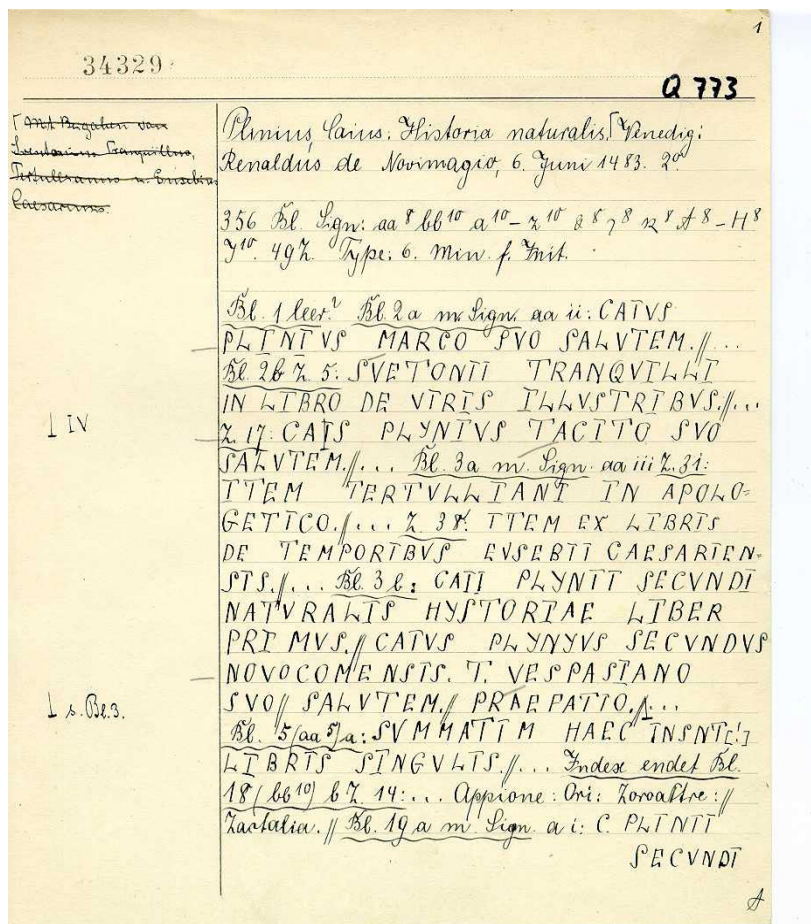 1
34329
Q 773
[Mit Beigaben von
Suetonius Tranquillus,
Tertullianus u. Eusebius
Caesariens.
Plinius, Caius: Historia naturalis. [Venedig:
Renaldus de Novimagio, 6. Juni 1483. 2°.
356 Bl. Sign: aa⁸ bb¹⁰ a¹⁰–z¹⁰ &⁸ ꝯ⁸ ꝶ⁸ A⁸–H⁸
J¹⁰. 49 Z. Type: 6. Min. f. Init.
Bl. 1 leer? Bl. 2a m. Sign. aa ii: CAIVS
PLINIVS MARCO SVO SALVTEM.//...
Bl. 2b Z. 5: SVETONII TRANQVILLI
IN LIBRO DE VIRIS ILLVSTRIBVS.//...
⊥ IV
Z. 17: CAIS PLYNIVS TACITO SVO
SALVTEM.//... Bl. 3a m. Sign. aa iii Z. 31:
ITEM TERTVLLIANI IN APOLO=
GETICO.//... Z. 38: ITEM EX LIBRIS
DE TEMPORIBVS EVSEBII CAESARIEN-
SIS.//... Bl. 3b: CAII PLYNII SECVNDI
NATVRALIS HYSTORIAE LIBER
PRI MVS.// CAIVS PLYNYVS SECVNDVS
NOVOCOMENSIS. T. VESPASIANO
⊥ s. Bl. 3.
SVO// SALVTEM.// PRAEPATIO.//...
Bl. 5 (aa 5)a: SVMMATIM HAEC INSNT[!]
LIBRIS SINGVLIS.//... Index endet Bl.
18 (bb 10) b Z. 14: ... Appione: Ori: Zoroastre://
Zactalia.// Bl. 19a m. Sign. a i: C. PLINII
SECVNDI